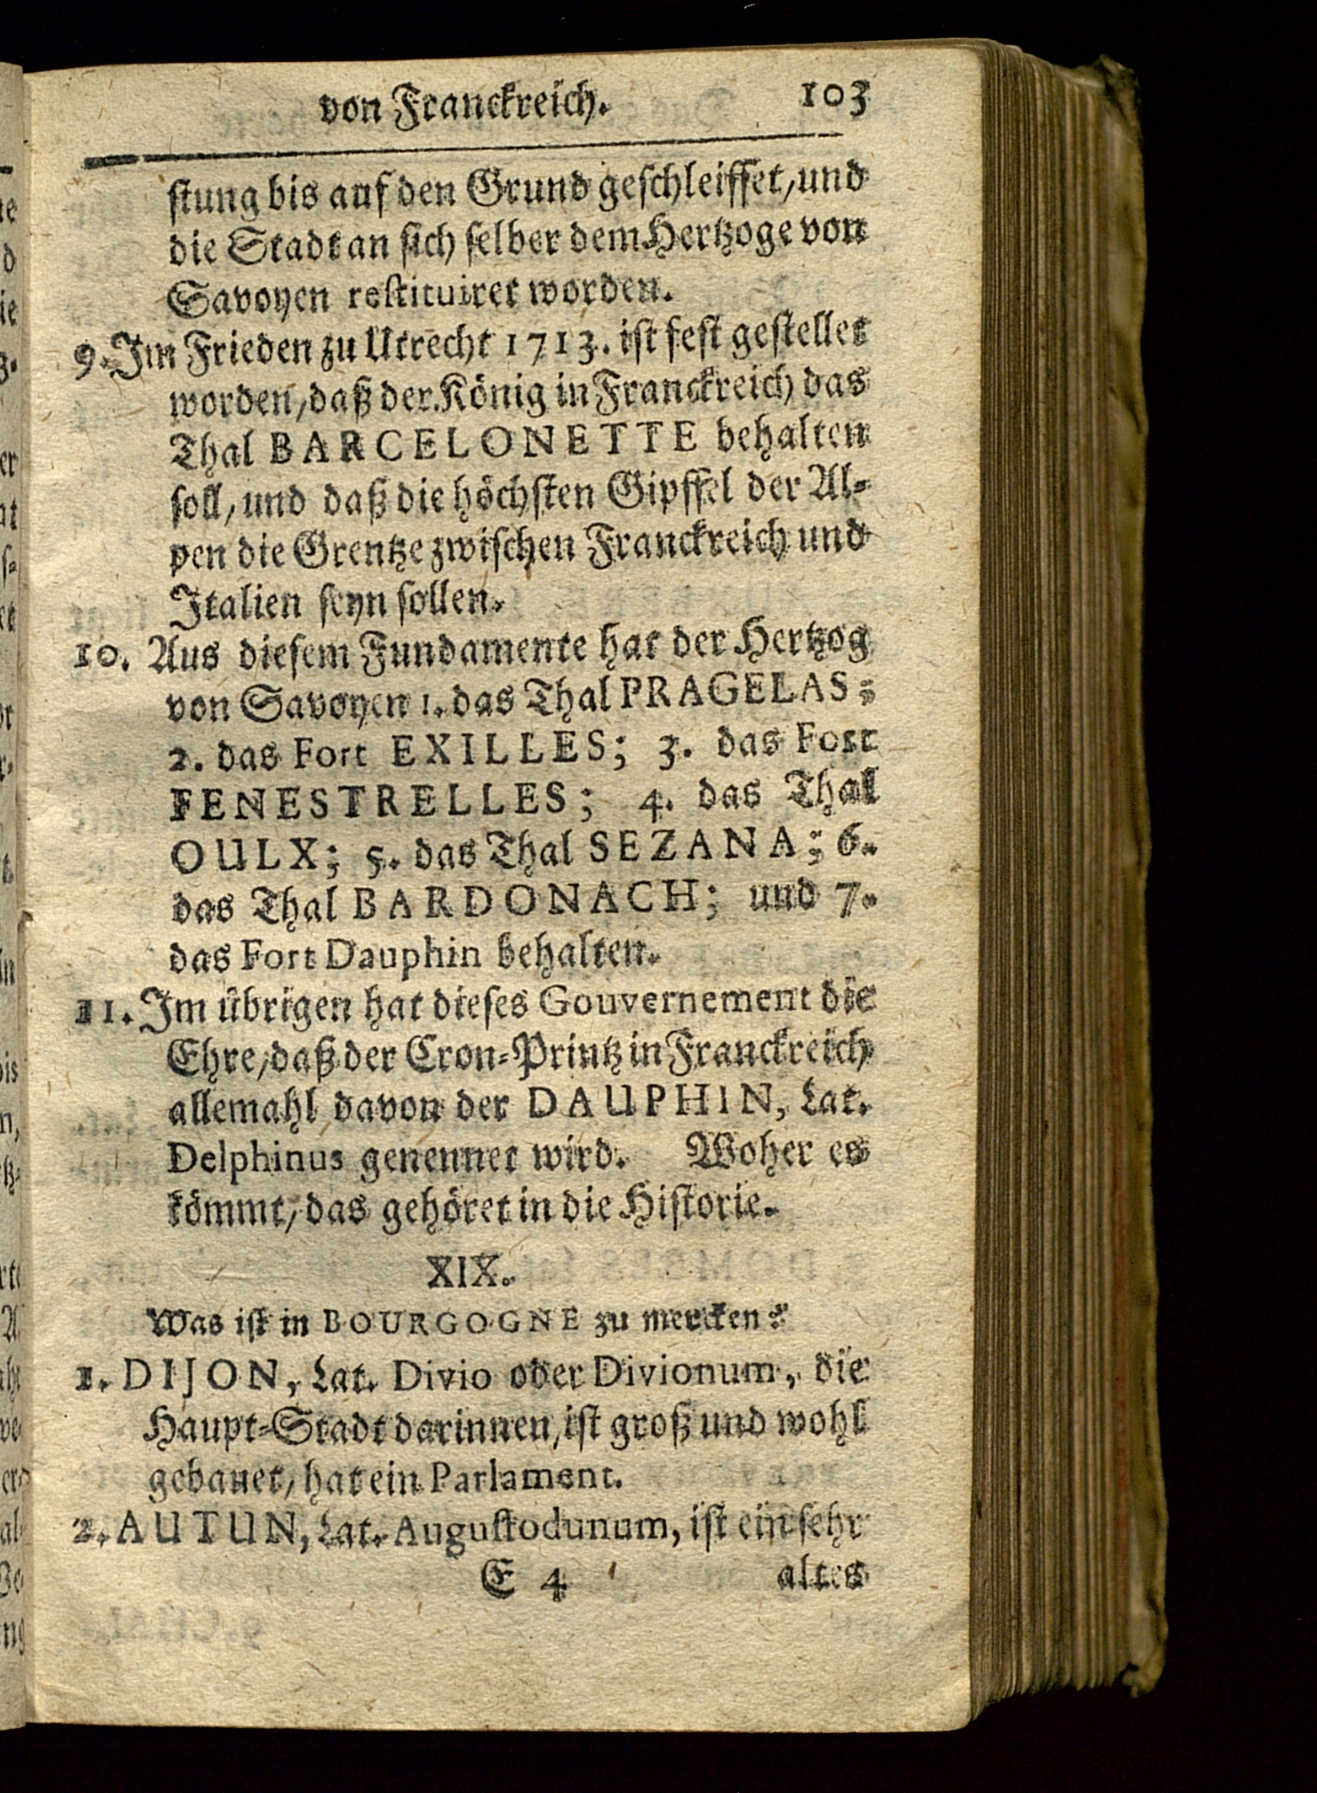 von Franckreich. 103
stung bis auf den Grund geschleiffet, und
die Stadt an sich selber dem Hertzoge von
Savoyen restituiret worden.
9. Im Frieden zu Utrecht 1713. ist fest gestellet
worden, daß der König in Franckreich das
Thal BARCELONETTE behalten
soll, und daß die höchsten Gipffel der Al-
pen die Grentze zwischen Franckreich und
Italien seyn sollen.
10. Aus diesem Fundamente hat der Hertzog
von Savoyen 1. das Thal PRAGELAS;
2. das Fort EXILLES; 3. das Fort
FENESTRELLES; 4. das Thal
OULX; 5. das Thal SEZANA; 6.
das Thal BARDONACH; und 7.
das Fort Dauphin behalten.
11. Im übrigen hat dieses Gouvernement die
Ehre, daß der Cron-Printz in Franckreich
allemahl davon der DAUPHIN, Lat.
Delphinus genennet wird. Woher es
kömmt, das gehöret in die Historie.
XIX.
Was ist in BOURGOGNE zu mercken?
1. DIJON, Lat. Divio oder Divionum, die
Haupt-Stadt darinnen, ist groß und wohl
gebauet, hat ein Parlament.
2. AUTUN, Lat. Augustodunum, ist ein sehr
E 4 altes